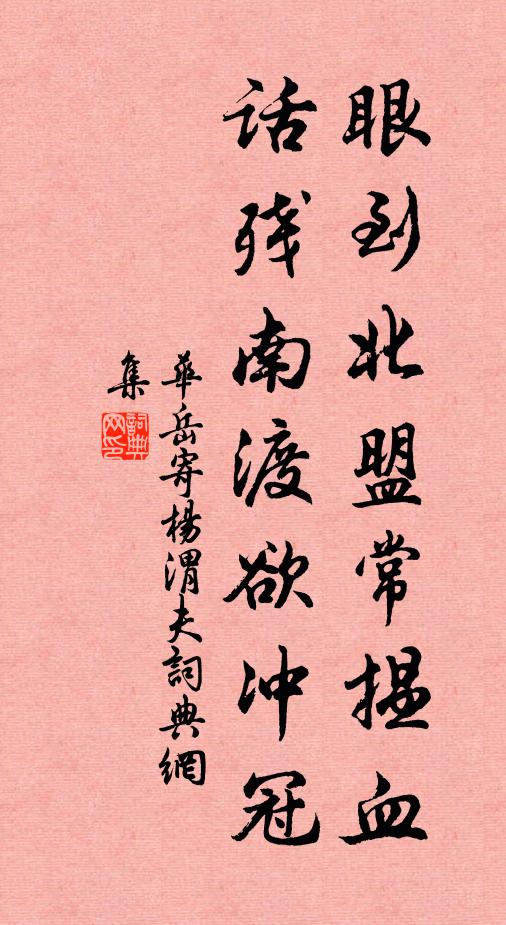 眼到北盟常揾血
话残南渡欲冲冠
華岳寄楊渭夫詞典網
集
詞典
网印